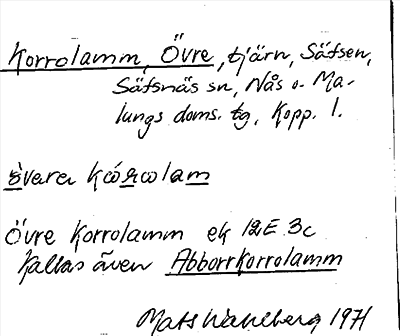 Korrolamm, Övre, tjärn, Säfsen,
Säfsnäs sn, Nås o. Ma-
lungs doms. tg, Kopp. l.
övara kórolam
Övre Korrolamm ek 12E 3c
Kallas även Abborrkorrolamm
Mats Wahlberg 1971